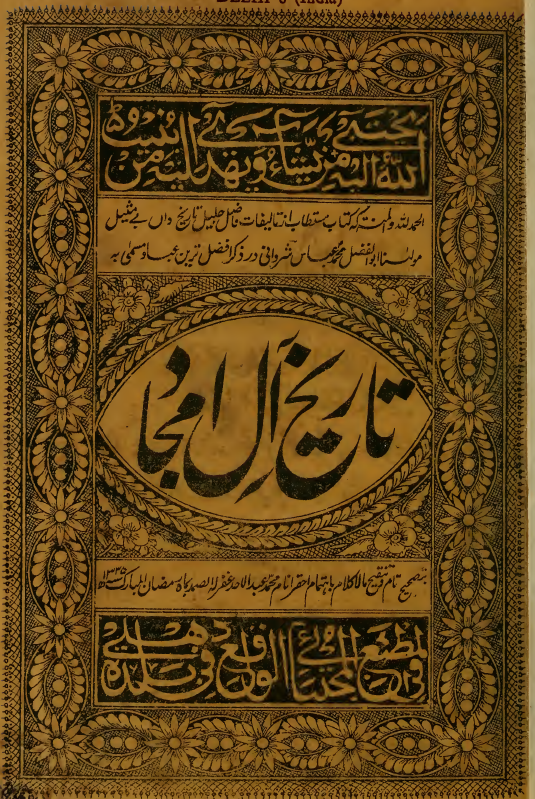 DELHI-6 (India)
يجتبي
الله اليه من يشاء ويهدي اليه من ينيب
الحمد لله والمنة که کتاب مستطاب از تالیفات فاضل جلیل تاریخ داں بے مثیل
مولٰنا ابو الفضل محمد عباس شروانی در ذکر افضل ترین عباد مسمی به
تاریخ آل امجاد
بتصحیح تام تنقیح مالاکلام باہتمام احقر انام محمد عبدالاحد غفرله الصمد بماه رمضان المبارک
في المطبع المجتبائي الواقع في بلدة دهلي